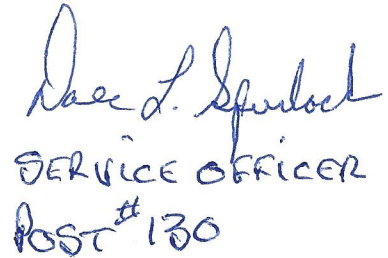 Dale L. Spurlock
SERVICE OFFICER
POST # 130